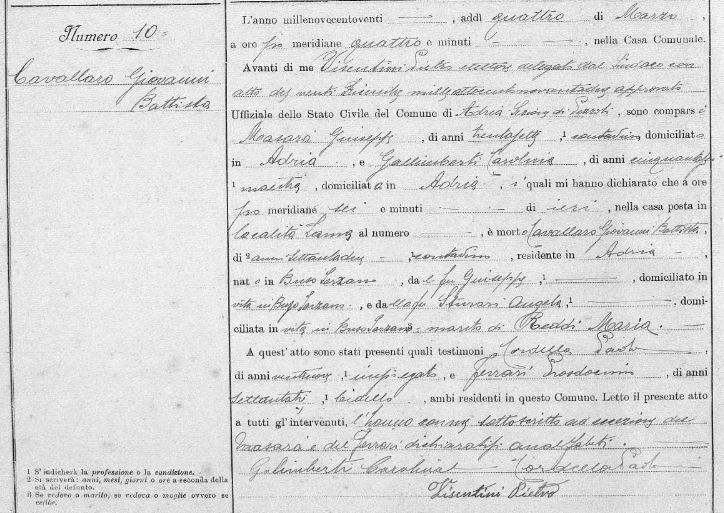 Numero 10=
Cavallaro Giovanni
Battista
L'anno millenovecentoventi , addì quattro di Marzo ,
a ore po meridiane quattro e minuti , nella Casa Comunale.
Avanti di me Visentini Pietro delegato dal Sindaco con
atto del venti Dicembre approvato
Uffiziale dello Stato Civile del Comune di Adria , sono comparsi
Masara Giuseppe , di anni trentasette , 1 contadino domiciliato
in Adria , e Gallimberti Carolina , di anni
1 maestra , domiciliata in Adria , i quali mi hanno dichiarato che a ore
po meridiane sei e minuti di ieri , nella casa posta in
località Lama al numero , è morto Cavallaro Giovanni Battista,
di 2 anni , contadino , residente in Adria ,
nato in Buso Sarzano , da l fu Giuseppe , 1 , domiciliato in
vita in Buso Sarzano , e da lla fu Angela , 1 , domi-
ciliata in vita in Buso Sarzano marito di Reddi Maria.
A quest'atto sono stati presenti quali testimoni Cordella Paolo
di anni , 1 impiegato , e Ferrari Prosdocimo , di anni
, 1 bidello , ambi residenti in questo Comune. Letto il presente atto
a tutti gl'intervenuti, l'hanno sottoscritto ad eccezione del
Masara e del Ferrari dichiaratisi analfabeti.
Galimberti Carolina Cordella Paolo
Visentini Pietro
1 S'indicherà la professione o la condizione.
2 Si scriverà: anni, mesi, giorni o ore a seconda della
età del defunto.
3 Se vedovo o marito, se vedova o moglie ovvero se
celibe.